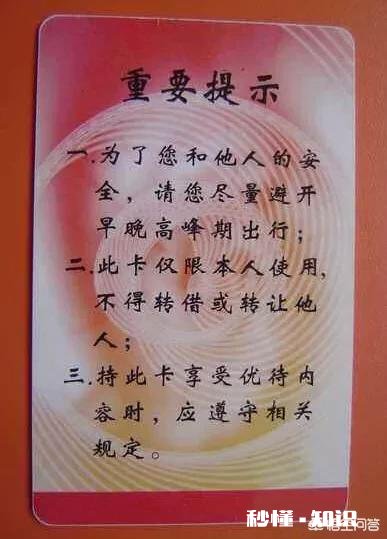 重要提示
一.为了您和他人的安
全，请您尽量避开
早晚高峰期出行；
二.此卡仅限本人使用，
不得转借或转让他
人；
三.持此卡享受优待内
容时，应遵守相关
规定。
秒懂·知识
悟空问答